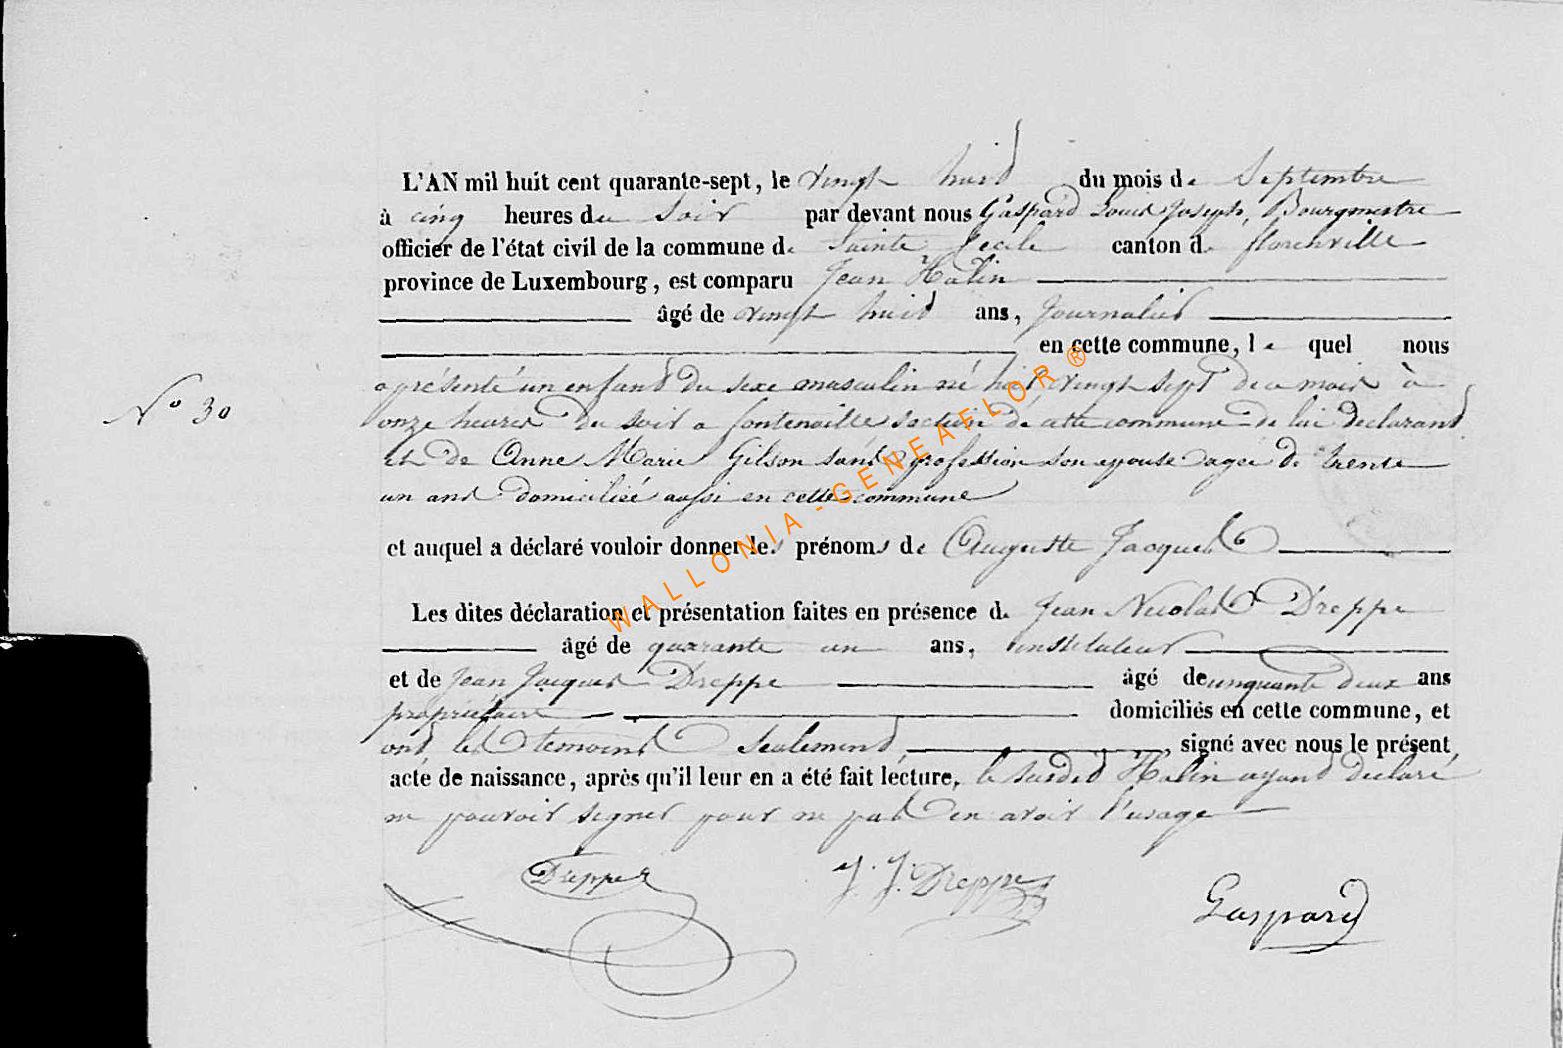 L'AN mil huit cent quarante-sept, le vingt huit du mois de Septembre
à cinq heures du Soir par devant nous Gaspard Louis Joseph, Bourgmestre
officier de l'état civil de la commune de Sainte Cecile canton de florenville
province de Luxembourg, est comparu Jean Halin
âgé de vingt huit ans, Journalier
en cette commune, le quel nous
N° 30
a présenté un enfant du sexe masculin né hier vingt sept de ce mois à
onze heures du soir a fontenoille section de cette commune de lui declarant
et de Anne Marie Gilson sans profession son epouse agée de trente
un ans domiciliée aussi en cette commune
et auquel a déclaré vouloir donner les prénoms de Auguste Jacques
Les dites déclaration et présentation faites en présence de Jean Nicolas Dreppe
âgé de quarante un ans, instituteur
et de Jean Jacques Dreppe âgé de cinquante deux ans
propriétaire domiciliés en cette commune, et
ont les temoins seulement, signé avec nous le présent
acte de naissance, après qu'il leur en a été fait lecture, le susdit Halin ayant declaré
ne pouvoir signer pour ne pas en avoir l'usage
Dreppe
J. J. Dreppe
Gaspard
WALLONIA - GENEAFLOR ®